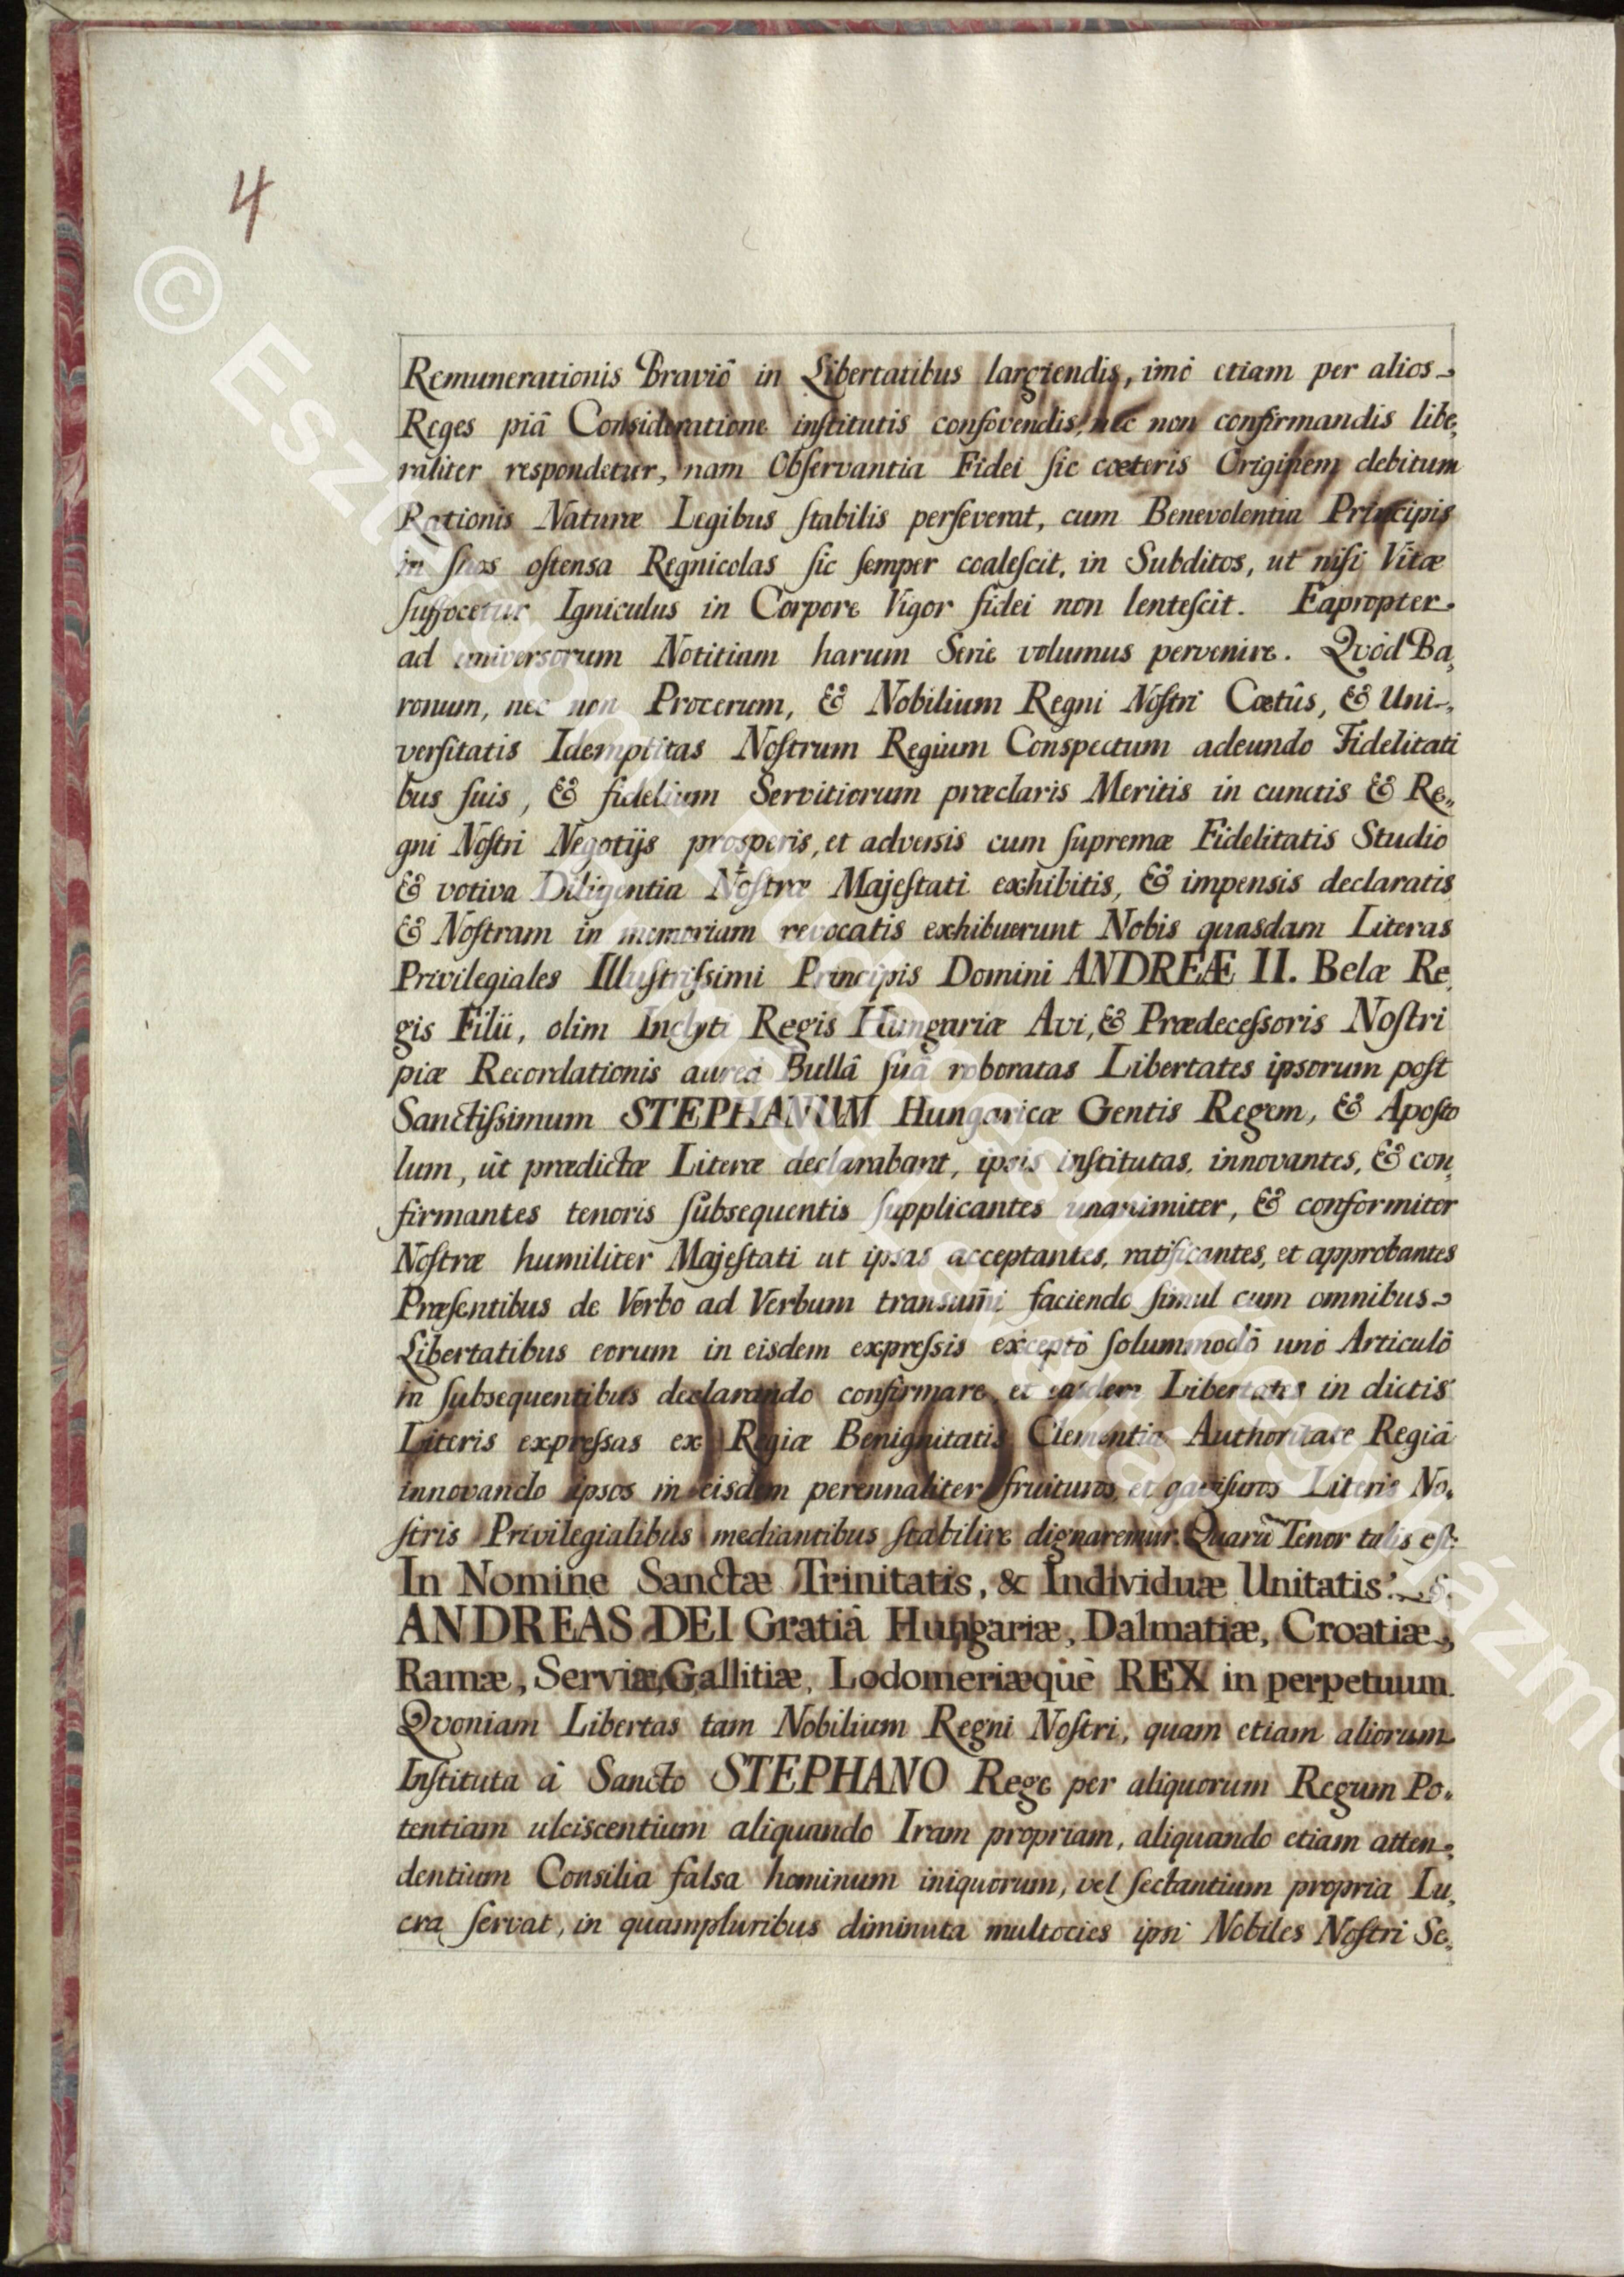 4
Remunerationis Braviô in Libertatibus largiendis, imò etiam per alios
Reges piâ Consideratione inſtitutis confovendis, nec non confirmandis libe,
raliter respondetur, nam Obſervantia Fidei ſic cæteris Originem debitum
Rationis Naturæ Legibus ſtabilis perſeverat, cum Benevolentia Principis
in ſuos oſtensa Regnicolas ſic ſemper coaleſcit, in Subditos, ut niſi Vitæ
ſuffocetur Igniculus in Corpore Vigor fidei non lenteſcit. Eapropter
ad universorum Notitiam harum Serie volumus pervenire. Qvòd Ba,
ronum, nec non Procerum, & Nobilium Regni Noſtri Cœtûs, & Uni-,
verſitatis Idemptitas Noſtrum Regium Conspectum adeundo Fidelitati
bus ſuis, & fidelium Servitiorum præclaris Meritis in cunctis & Re,,
gni Noſtri Negotijs prosperis, et adversis cum ſupremæ Fidelitatis Studio
& votiva Diligentia Noſtræ Majeſtati exhibitis, & impensis declaratis
& Noſtram in memoriam revocatis exhibuerunt Nobis quasdam Literas
Privilegiales Illuſtriſsimi Principis Domini ANDREÆ II. Belæ Re,
gis Filii, olim Inclyti Regis Hungariæ Avi, & Prædeceſsoris Noſtri
piæ Recordationis aurea Bullâ ſuâ roboratas Libertates ipsorum poſt
Sanctiſsimum STEPHANUM Hungaricæ Gentis Regem, & Apoſto
lum, ût prædictæ Literæ declarabant, ipsis inſtitutas, innovantes, & con,
firmantes tenoris ſubsequentis ſupplicantes unanimiter, & conformiter
Noſtræ humiliter Majeſtati ut ipsas acceptantes, ratificantes, et approbantes
Præſentibus de Verbo ad Verbum transum̃i faciendo ſimul cum omnibus
Libertatibus eorum in eisdem expreſsis exceptô ſolummodô unô Articulô
in ſubsequentibus declarando confirmare, et easdem Libertates in dictis
Literis expreſsas ex Regiæ Benignitatis Clementia Authoritate Regiâ
innovando ipsos in eisdem perennaliter fruituros, et gaviſuros Literis No,
ſtris Privilegialibus mediantibus ſtabilire dignaremur. Quarũ Tenor talis eſt:
In Nomine Sanctæ Trinitatis, & Individuæ Unitatis.
ANDREAS DEI Gratiâ Hungariæ, Dalmatiæ, Croatiæ,
Ramæ, Serviæ, Gallitiæ, Lodomeriæqûe REX in perpetuum.
Qvoniam Libertas tam Nobilium Regni Noſtri, quam etiam aliorum
Inſtituta â Sancto STEPHANO Rege per aliquorum Regum Po,
tentiam ulciscentium aliquando Iram propriam, aliquando etiam atten,
dentium Consilia falsa hominum iniquorum, vel ſectantium propria Lu,
cra ſervat, in quampluribus diminuta multocies ipsi Nobiles Noſtri Se,